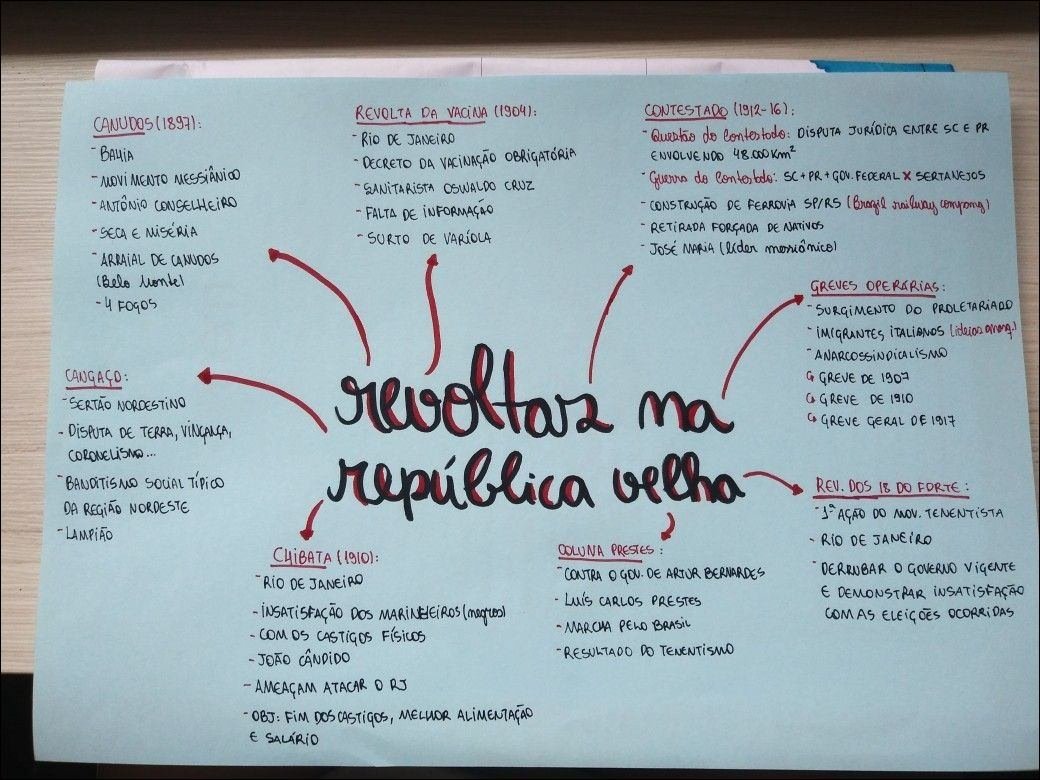 revoltas na
república velha
CANUDOS (1897):
- BAHIA
- MOVIMENTO MESSIÂNICO
- ANTÔNIO CONSELHEIRO
- SECA E MISÉRIA
- ARRAIAL DE CANUDOS
(Belo Monte)
- 4 FOGOS
REVOLTA DA VACINA (1904):
- RIO DE JANEIRO
- DECRETO DA VACINAÇÃO OBRIGATÓRIA
- SANITARISTA OSWALDO CRUZ
- FALTA DE INFORMAÇÃO
- SURTO DE VARÍOLA
CONTESTADO (1912-16):
- Questão do Contestado: DISPUTA JURÍDICA ENTRE SC E PR
ENVOLVENDO 48.000Km²
- Guerra do Contestado: SC + PR + GOV. FEDERAL X SERTANEJOS
- CONSTRUÇÃO DE FERROVIA SP/RS (Brazil railway company)
- RETIRADA FORÇADA DE NATIVOS
- JOSÉ MARIA (líder messiânico)
GREVES OPERÁRIAS:
- SURGIMENTO DO PROLETARIADO
- IMIGRANTES ITALIANOS (ideias anarq.)
- ANARCOSSINDICALISMO
↳ GREVE DE 1907
↳ GREVE DE 1910
↳ GREVE GERAL DE 1917
CANGAÇO:
- SERTÃO NORDESTINO
- DISPUTA DE TERRA, VINGANÇA,
CORONELISMO...
- BANDITISMO SOCIAL TÍPICO
DA REGIÃO NORDESTE
- LAMPIÃO
CHIBATA (1910):
- RIO DE JANEIRO
- INSATISFAÇÃO DOS MARINHEIROS (negros)
- COM OS CASTIGOS FÍSICOS
- JOÃO CÂNDIDO
- AMEAÇAM ATACAR O RJ
- OBJ: FIM DOS CASTIGOS, MELHOR ALIMENTAÇÃO
E SALÁRIO
COLUNA PRESTES:
- CONTRA O GOV. DE ARTUR BERNARDES
- LUÍS CARLOS PRESTES
- MARCHA PELO BRASIL
- RESULTADO DO TENENTISMO
REV. DOS 18 DO FORTE:
- 1ª AÇÃO DO MOV. TENENTISTA
- RIO DE JANEIRO
- DERRUBAR O GOVERNO VIGENTE
E DEMONSTRAR INSATISFAÇÃO
COM AS ELEIÇÕES OCORRIDAS